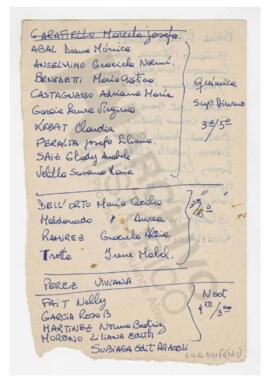 GARAFIELLO Marcela Josefa.
ABAL Diana Mónica
ANSELMINO Graciela Noemí.
BENEDETTI María Cristina
CASTAGNASSO Adriana María
García Laura Virginia
KEBAT Claudia
PERALTA Josefa Liliana.
SAIZ Glady
Velilla Susana Sara
Química
Sup. Diurno
3º/5º
DELL'ORTO María Cecilia
Maldonado " Aurea
RAMIREZ Graciela Alcira
Trotta Irene Mabel.
PEREZ VIVIANA
FAIT Nelly
GARCIA ROSA B
MARTINEZ Norma Beatriz
MORENO LILIANA EDITH
SUBIAGA EDIT ARACELI